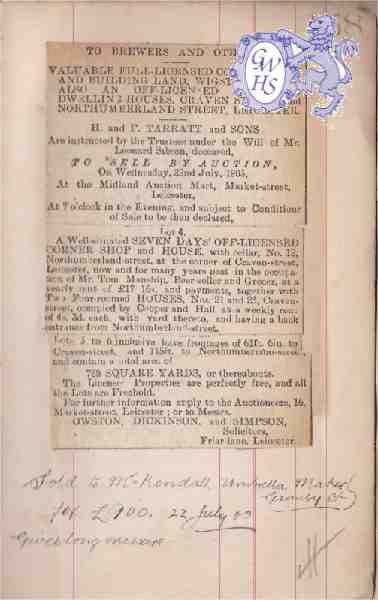 TO BREWERS AND
VALUABLE FULL-LICENSED
AND BUILDING LAND,
ALSO AN OFF-LICENSED
DWELLING HOUSES, CRAVEN
NORTHUMBERLAND STREET,
GWHS
H. and F. TARRATT and SONS
Are instructed by the Trustees under the Will of Mr.
Leonard Sabson, deceased,
TO SELL BY AUCTION,
On Wednesday, 22nd July, 1903,
At the Midland Auction Mart, Market-street,
Leicester,
At 7 o'clock in the Evening, and subject to Conditions
of Sale to be then declared,
Lot 4.
A Well-situated SEVEN DAYS' OFF-LICENSED
CORNER SHOP and HOUSE, with cellar, No. 12,
Northumberland-street, at the corner of Craven-street,
Leicester, now and for many years past in the occupa-
tion of Mr. Tom Manship, Beer-seller and Grocer, at a
yearly rent of £17 16s. and payments, together with
Two Four-roomed HOUSES, Nos. 21 and 23, Craven-
street, occupied by Cooper and Hall, at a weekly rent
of 4s. 3d. each, with yard thereto, and having a back
entrance from Northumberland-street.
Lots 5 to 6 inclusive have frontages of 61ft. 6in. to
Craven-street, and 115ft. to Northumberland-street
and contain a total area of
729 SQUARE YARDS, or thereabouts.
The License Properties are perfectly free, and all
the Lots are Freehold.
For further information apply to the Auctioneers, 16,
Market-street, Leicester; or to Messrs.
OWSTON, DICKINSON, and SIMPSON,
Solicitors,
Friar-lane, Leicester.
Sold to Mr Kendall Umbrella Maker
for £900. 22 July 03